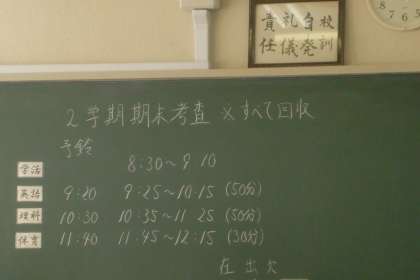 校訓
自発
礼儀
責任
2学期期末考査 ※すべて回収
予鈴
学活 8:30〜9:10
英語 9:20 9:25〜10:15 (50分)
理科 10:30 10:35〜11:25 (50分)
保育 11:40 11:45〜12:15 (30分)
在 出 欠